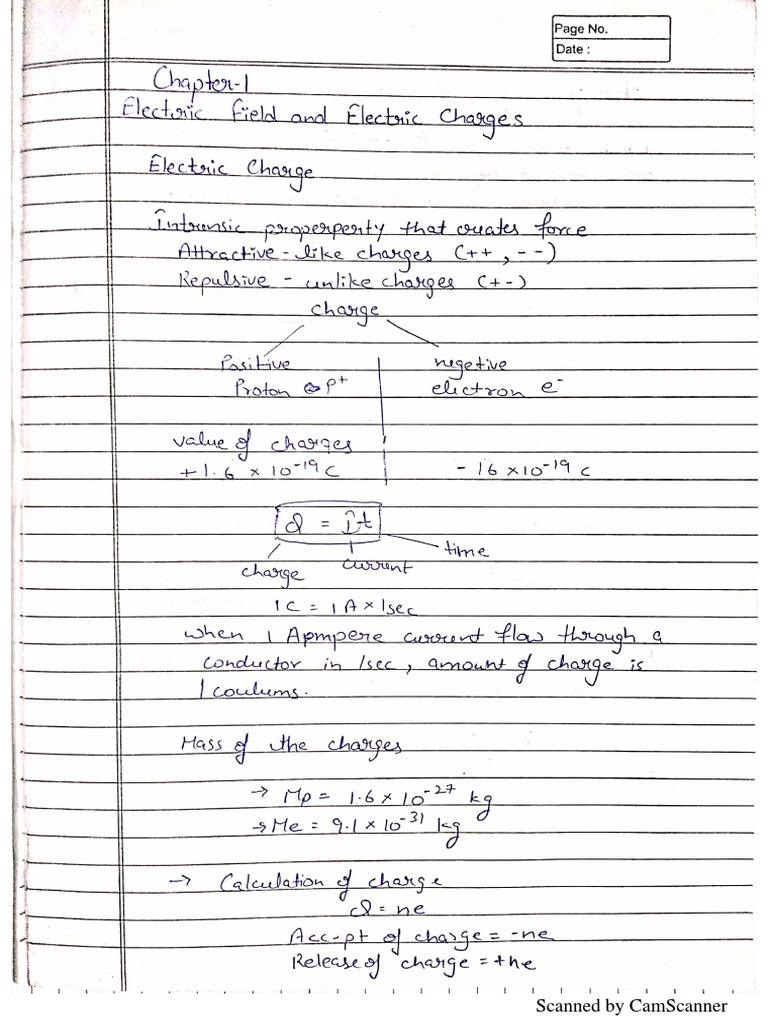 Page No.
Date :
Chapter-1
Electric Field and Electric Charges
Electric Charge
Intrinsic properperty that creates force
Attractive - like charges (++ , --)
Repulsive - unlike charges (+-)
charge
Positive negetive
Proton P+ electron e-
value of charges
+1.6 × 10^-19 C - 16 × 10^-19 C
Q = It
charge current time
1C = 1A × 1sec
when 1 Apmpere current flow through a
conductor in 1sec, amount of charge is
1 coulums.
Mass of the charges
→ Mp = 1.6 × 10^-27 kg
→ Me = 9.1 × 10^-31 kg
→ Calculation of charge
Q = ne
Acc-pt of charge = -ne
Release of charge = +ne
Scanned by CamScanner